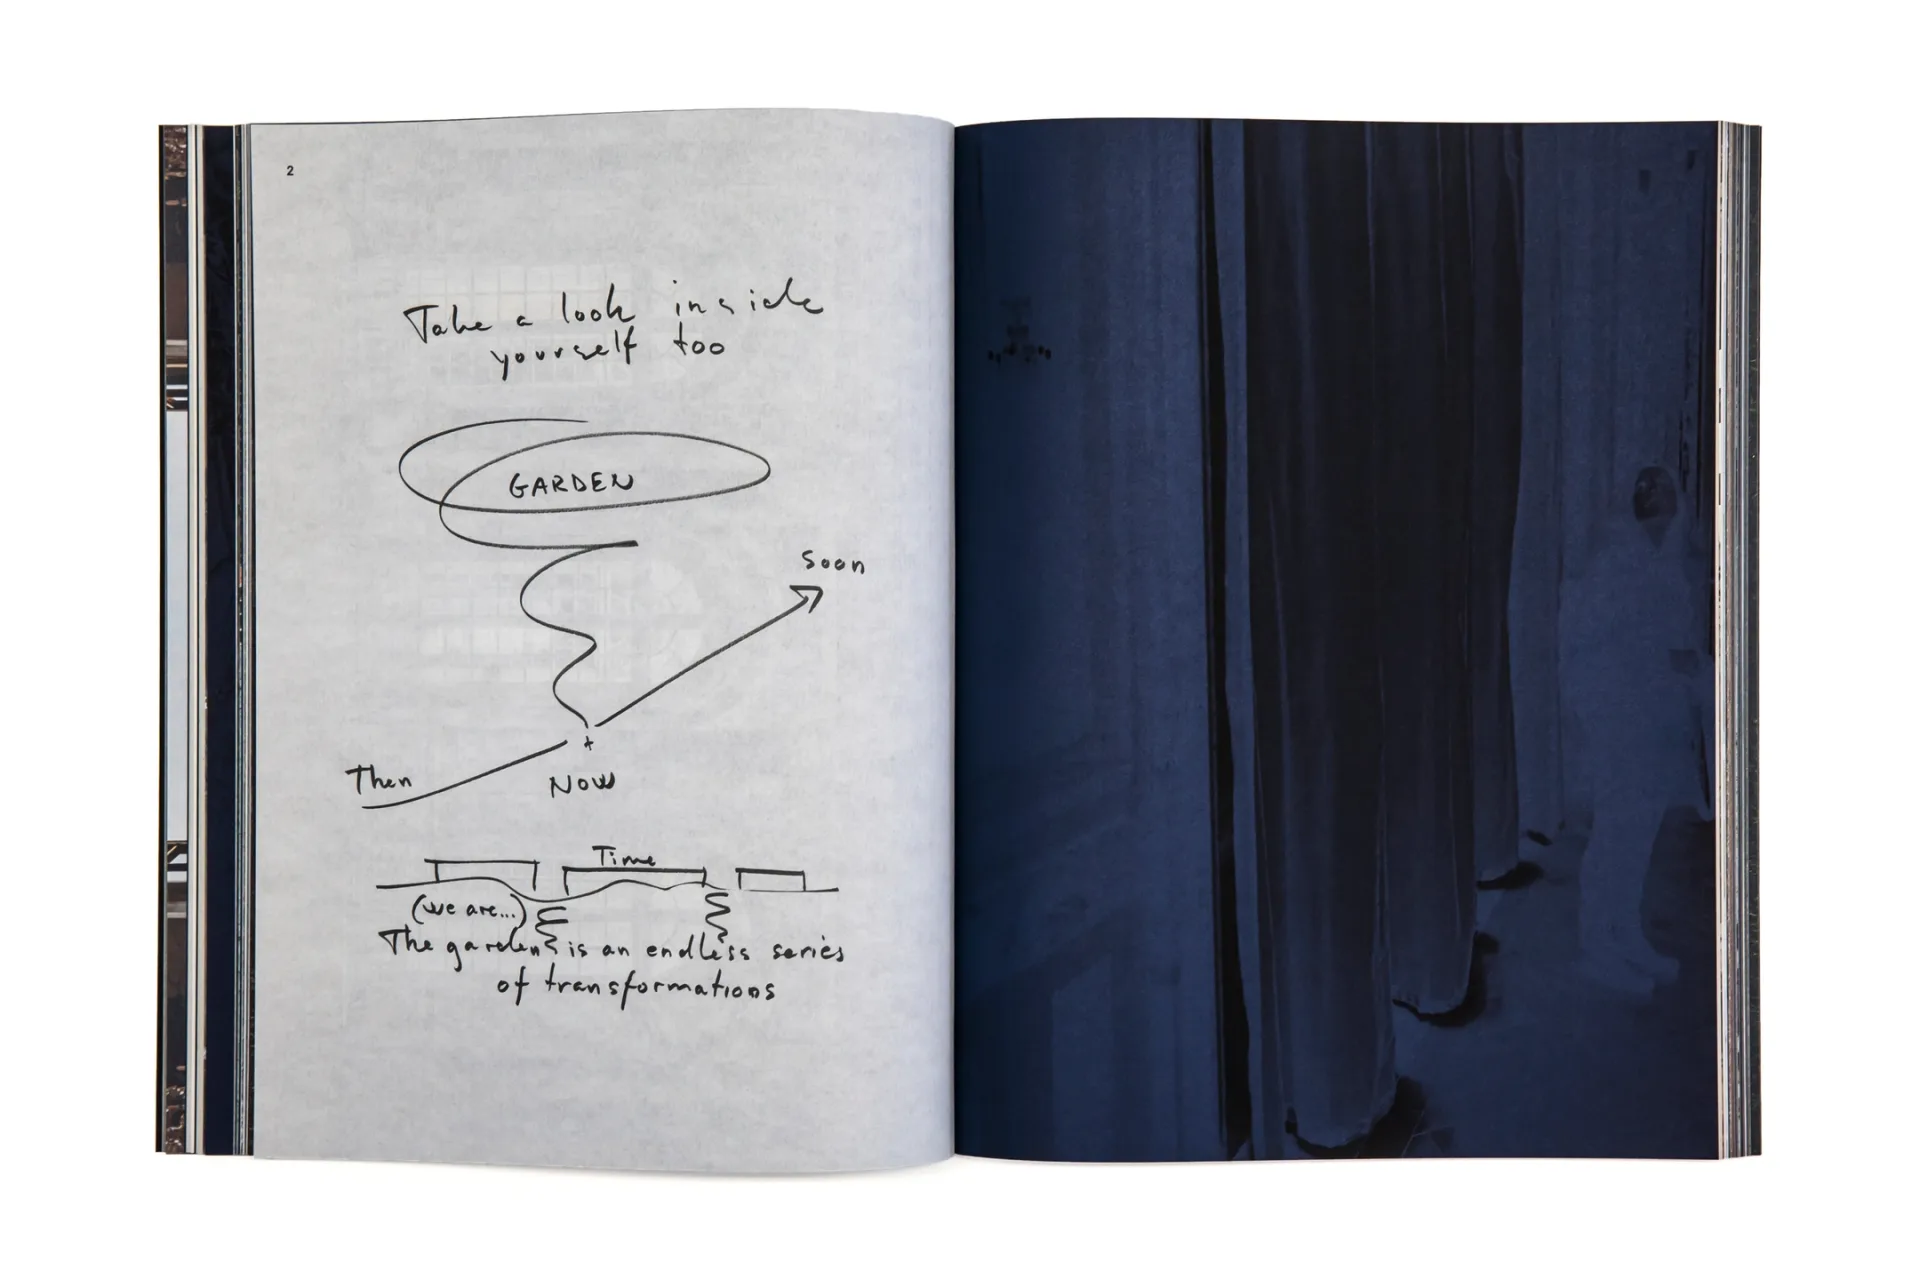 2
Take a look inside
yourself too
GARDEN
Soon
Then
NOW
Time
(we are...)
The garden is an endless series
of transformations